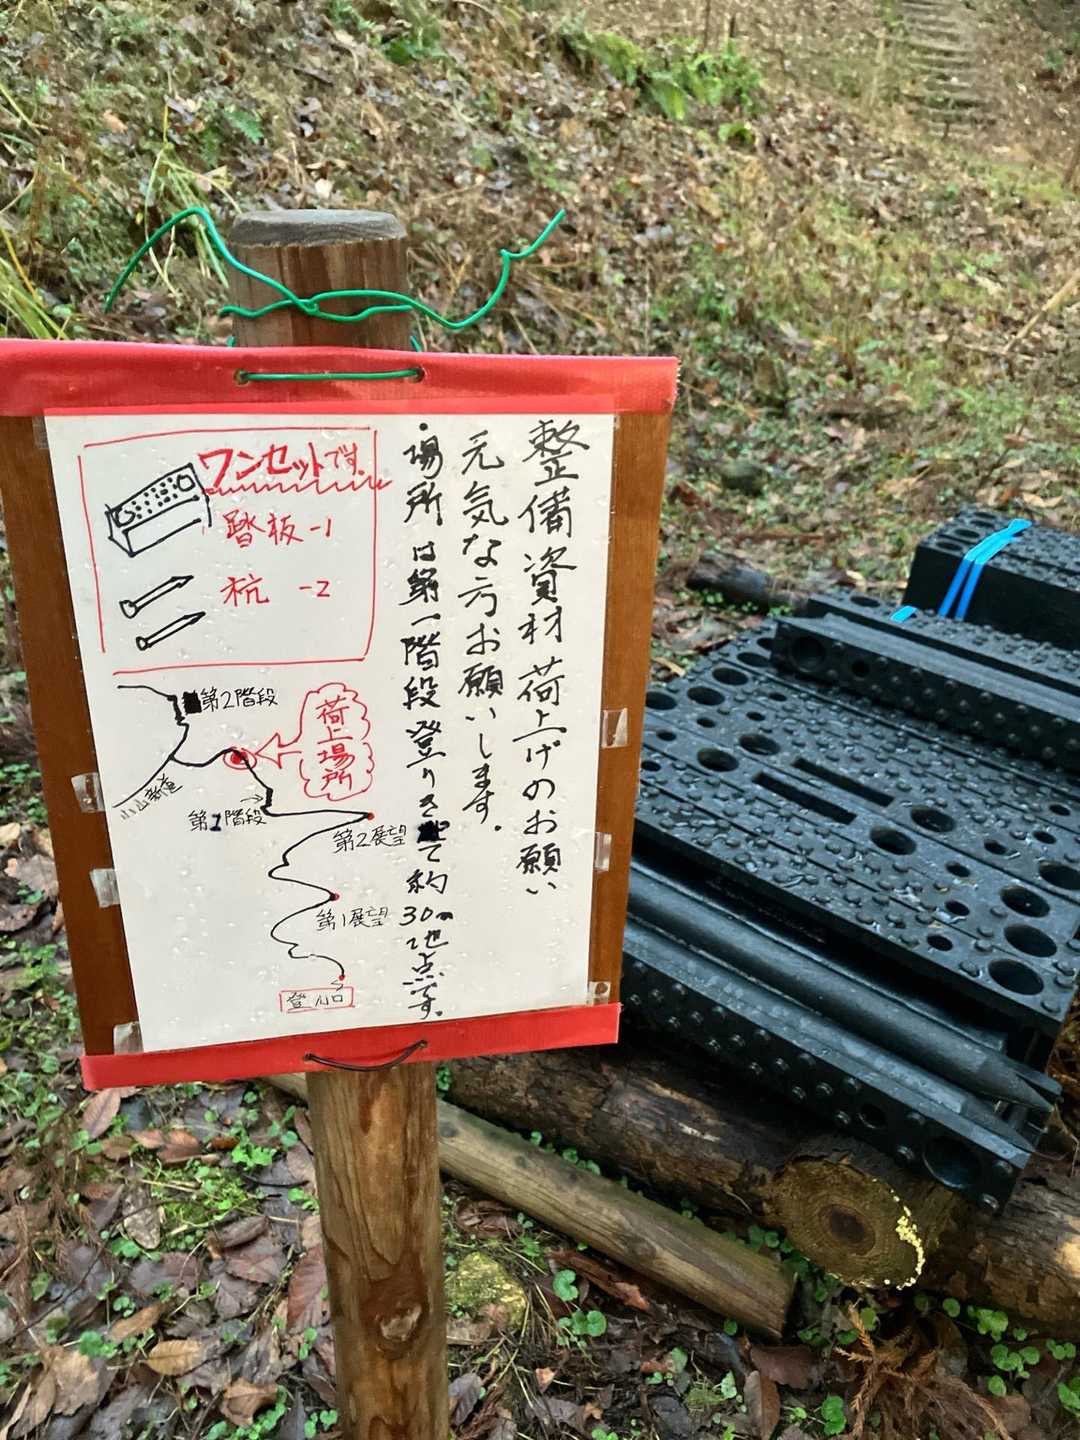 整備資材荷上げのお願い
元気な方お願いします。
・場所は第一階段登りきって約30m地点です。
ワンセットです。
踏板-1
杭-2
第2階段
荷上場所
小山新道
第1階段
第2展望
第1展望
登山口